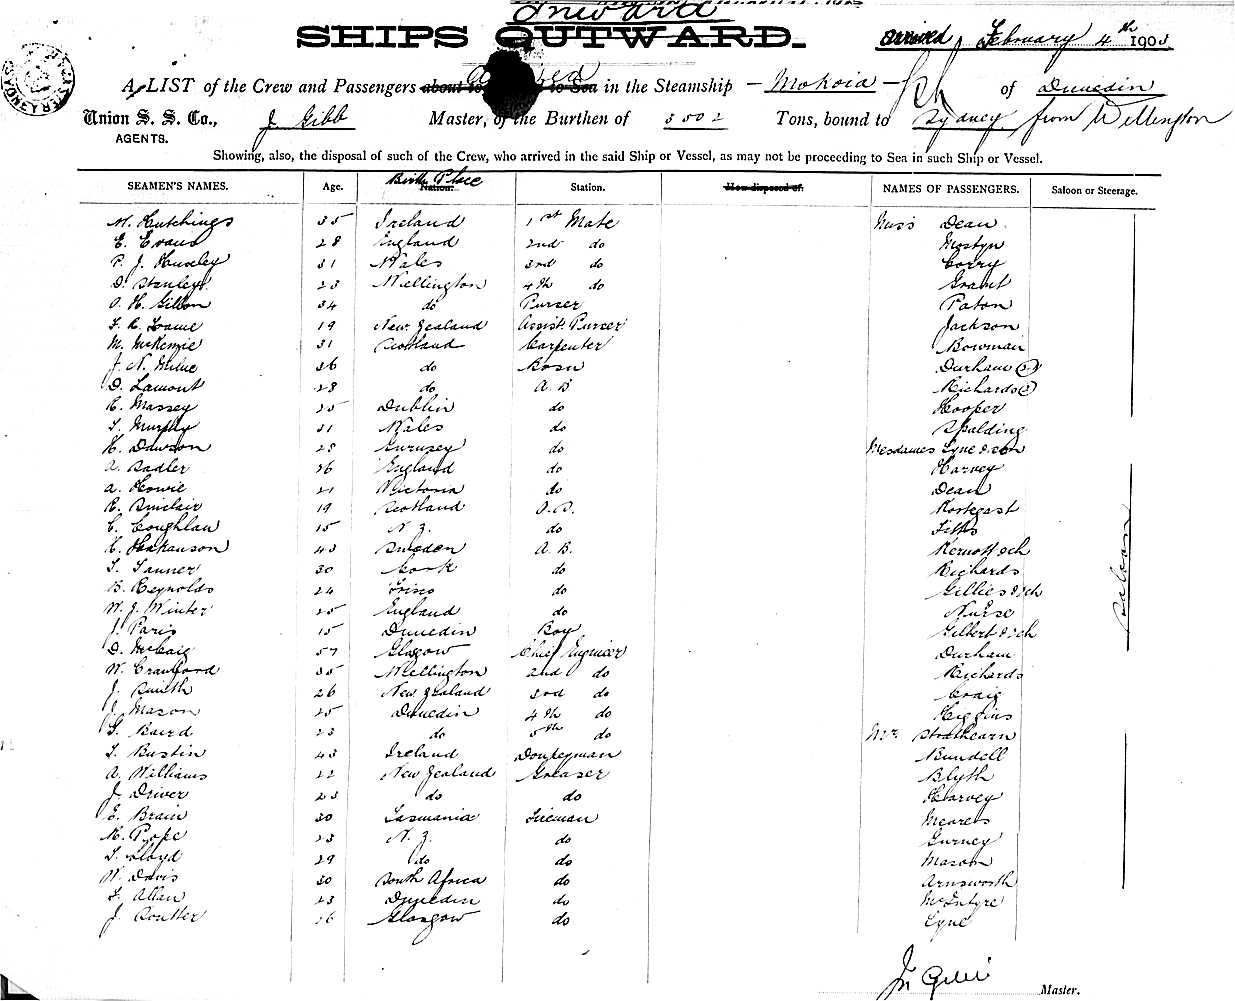 Inward
SHIPS OUTWARD. arrived February 4th 1903
A LIST of the Crew and Passengers about to Sea in the Steamship — Mokoia — of Dunedin
Union S. S. Co., J Gibb Master, of the Burthen of 3502 Tons, bound to Sydney from Wellington
AGENTS.
Showing, also, the disposal of such of the Crew, who arrived in the said Ship or Vessel, as may not be proceeding to Sea in such Ship or Vessel.
SEAMEN'S NAMES. Age. Birth Place Nation. Station. How disposed of. NAMES OF PASSENGERS. Saloon or Steerage.
M. Hutchings 35 Ireland 1st Mate Miss Dean
E. Evans 28 England 2nd do Mostyn
P. J. Huxley 31 Wales 3rd do Corry
D. Stanley 23 Wellington 4th do Grant
O. H. Gillon 34 do Purser Paton
19 New Zealand Assist. Purser Jackson
M. McKenzie 31 Scotland Carpenter Bowman
J. N. Milne 36 do Bosn Durham (2)
D. Lamont 28 do A B Richards (2)
Massey 25 Dublin do Hooper
T. Murphy 31 Wales do Spalding
H. Dawson 28 Gurnsey do Mesdames Lyne & son
A. Sadler 26 England do Harvey
A. Howie 21 Victoria do Dean
R. Sinclair 19 Scotland O.S.
C. Coughlan 15 N. Z. do
C. Hakanson 43 Sweden A. B.
T. Tanner 30 Cork do Richards
B. Reynolds 24 Frisco do Gillies & ch
W. J. Winter 25 England do Nurse
J. Paris 15 Dunedin Boy Gilbert & ch
D. McCaig 57 Glasgow Chief Engineer Durham
W. Crawford 35 Wellington 2nd do Richards
J. Smith 26 New Zealand 3rd do Craig
J. Mason 25 Dunedin 4th do Higgins
G. Baird 23 do 5th do Mr Strathearn
T. Bustin 43 Ireland Donkeyman Bundell
A. Williams 22 New Zealand Greaser Blyth
J. Driver 23 do do Harvey
E. Brain 30 Tasmania Fireman Meares
M. Pope 23 N. Z. do Gurney
T. Lloyd 29 do do Mason
W. Davis 30 South Africa do Arnsworth
F. Allan 23 Dunedin do McIntyre
J. Soutter 26 Glasgow do Lyne
Saloon
Master.